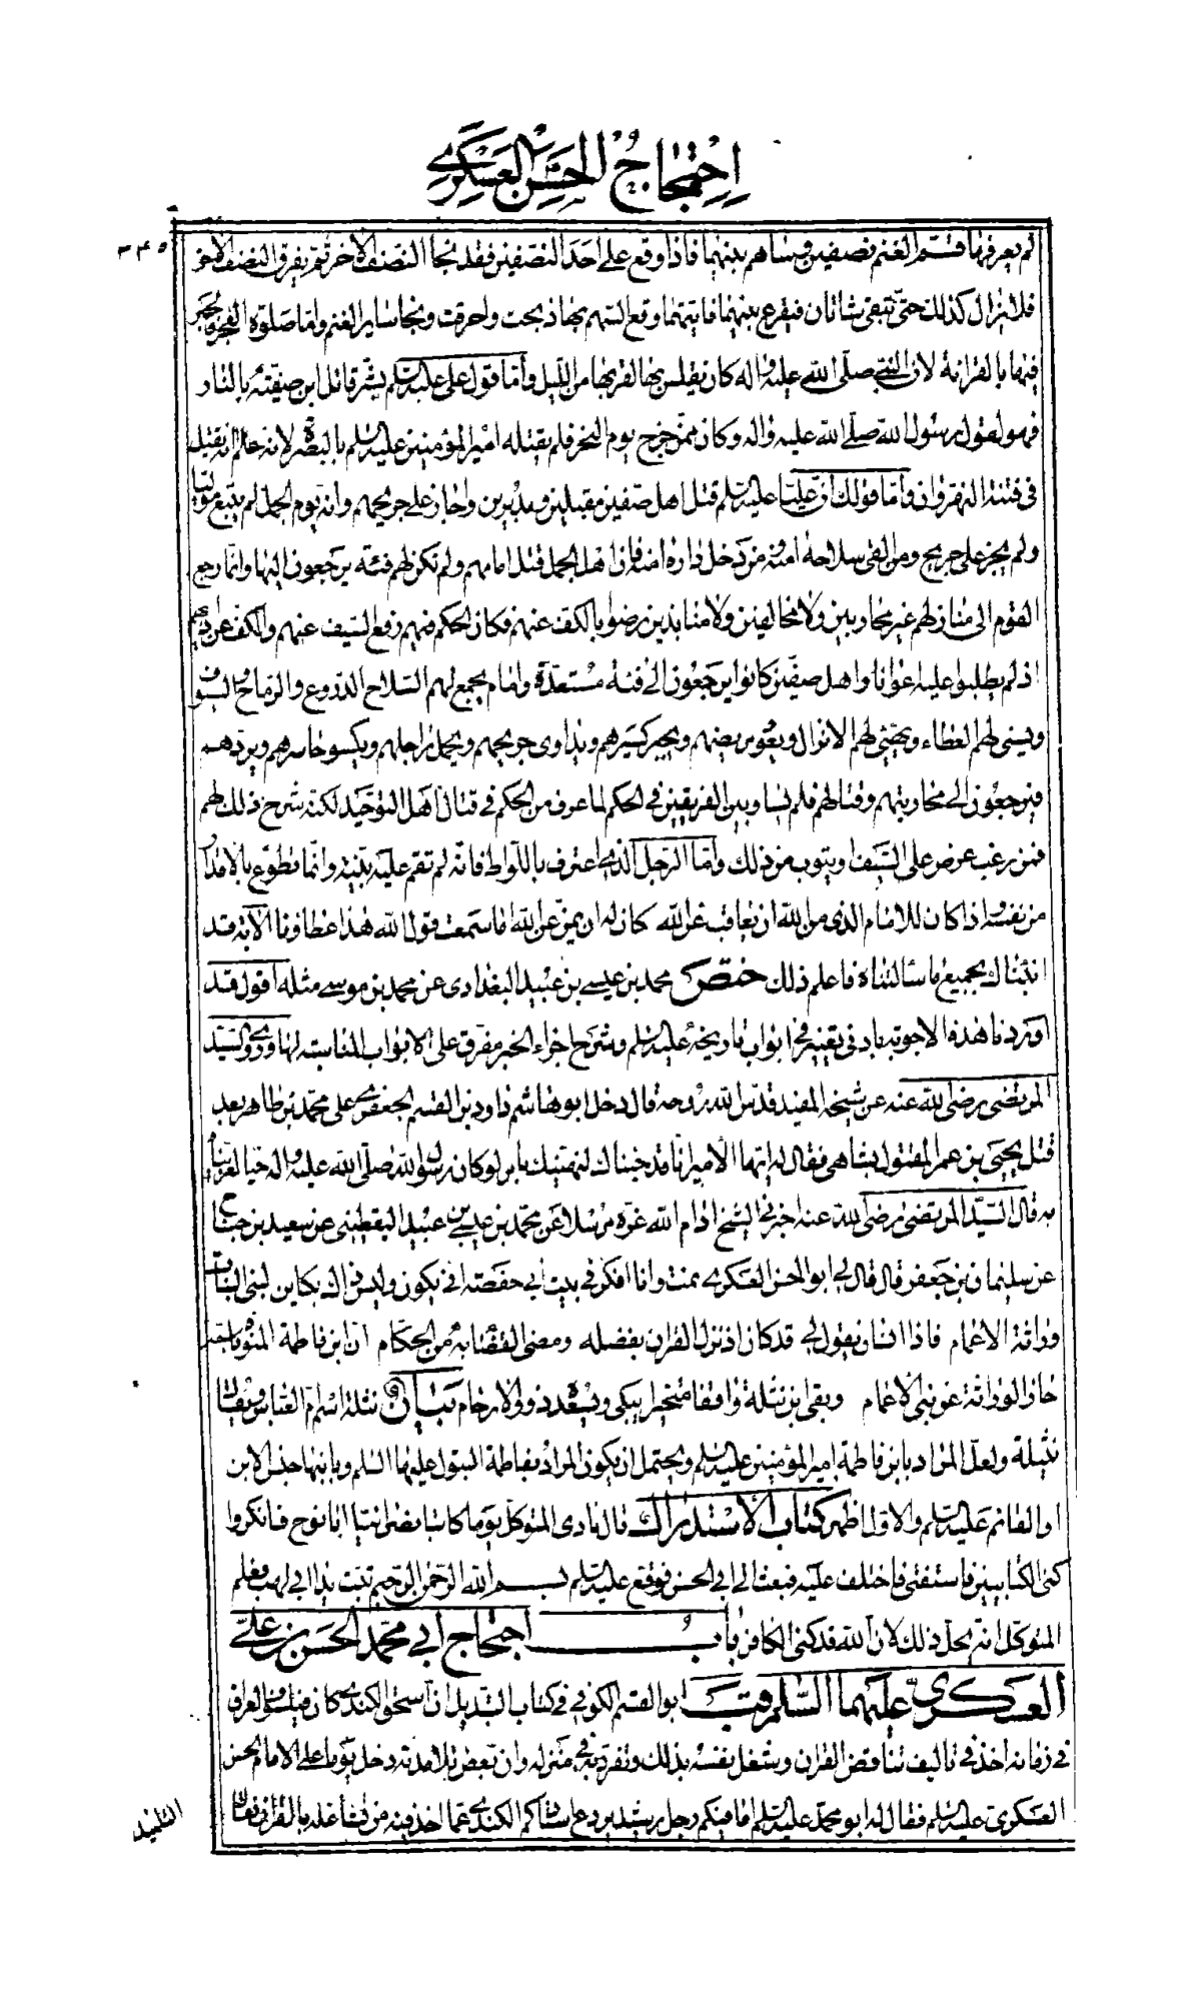 احتجاج الحسن العسكري
٣٤٥
لم يعرفها قسم الغنم نصفين وساهم بينهما فاذا وقع على احد النصفين فقد نجا النصف الآخر ثم يفرق النصف الآخر
فلا يزال كذلك حتى تبقى شاتان فيقرع بينهما فايتهما وقع السهم بها ذبحت واحرقت ونجا ساير الغنم واما صلوة الفجر فالجهر
فيها بالقراءة لان النبي صلى الله عليه واله كان يغلس بها لقربها من الليل واما قول علي عليه السلم بشر قاتل ابن صفية بالنار
فهو لقول رسول الله صلى الله عليه واله وكان ممن خرج يوم النهر فلم يقتله امير المؤمنين عليه السلم بالبصرة لانه علم انه يقتل
في فتنة النهروان واما قولك ان عليا عليه السلم قتل اهل صفين مقبلين ومدبرين واجاز على جريحهم وانه يوم الجمل لم يتبع موليا
ولم يجز على جريح ومن القى سلاحه امنه ومن دخل داره امنه فان اهل الجمل قتل امامهم ولم تكن لهم فئة يرجعون اليها وانما رجع
القوم الى منازلهم غير محاربين ولا مخالفين ولا منابذين رضوا بالكف عنهم فكان الحكم فيهم رفع السيف عنهم والكف عن اذيهم
اذ لم يطلبوا عليه اعوانا واهل صفين كانوا يرجعون الى فئة مستعدة وامام يجمع لهم السلاح الدروع والرماح والسيوف
ويسني لهم العطاء ويهيئ لهم الانزال ويعود مريضهم ويجبر كسيرهم ويداوي جريحهم ويحمل راجلهم ويكسو حاسرهم ويردهم
فيرجعون الى محاربتهم وقتالهم فلم يساو بين الفريقين في الحكم لما عرف من الحكم في قتال اهل التوحيد لكنه شرح ذلك لهم
فمن رغب عرض على السيف او يتوب من ذلك واما الرجل الذي اعترف باللواط فانه لم تقم عليه بينة وانما تطوع بالاقرار
من نفسه واذا كان للامام الذي من الله ان يعاقب عن الله كان له ان يمن عن الله اما سمعت قول الله هذا عطاؤنا الآية قد
انبأناك بجميع ما سألتناه فاعلم ذلك ختص محمد بن عيسى بن عبيد البغدادي عن محمد بن موسى مثله اقول قد
اوردنا هذه الاجوبة بادنى تغيير في ابواب تاريخه عليه السلم وشرح اجزاء الخبر مفرق على الابواب المناسبة لها وروى السيد
المرتضى رضي الله عنه عن شيخه المفيد قدس الله روحه قال دخل ابو هاشم داود بن القسم الجعفري على محمد بن طاهر بعد
قتل يحيى بن عمر المقتول بشاهي فقال له ايها الامير انا قد جئناك لنهنيك بامر لو كان رسول الله صلى الله عليه واله حيا لعزيناه
به قال السيد المرتضى رضي الله عنه اخبرني الشيخ ادام الله عزه مرسلا عن محمد بن عيسى بن عبيد اليقطيني عن سعيد بن جناح
عن سليمان بن جعفر قال قال لي ابو الحسن العسكري نمت وانا افكر في بيت ابي حفصة انى يكون وليس ذاك بكاين لبني البنات
وراثة الاعمام فاذا انسان يقول لي قد كان اذ نزل القرآن بفضله ومضى القضاء به من الحكام ان ابن فاطمة المنوه باسمه
حاز الوراثة عن بني الاعمام وبقي ابن نثلة واقفا متحيرا يبكي ويسعده ذوو الارحام بيان نثلة اسم ام العباس ويقال
نثيلة ولعل المراد بابن فاطمة امير المؤمنين عليه السلم ويحتمل ان يكون المراد بفاطمة البتول عليها السلم وبابنها جنس الابن
او القائم عليه السلم والاول اظهر كتاب الاستدراك قال نادى المتوكل يوما كاتبا نصرانيا ابا نوح فانكروا
كنى الكتابيين فاستفتى فاختلف عليه فبعث الى ابي الحسن فوقع عليه السلم بسم الله الرحمن الرحيم تبت يدا ابي لهب فعلم
المتوكل انه يحل ذلك لان الله قد كنى الكافر باب احتجاج ابي محمد الحسن بن علي
العسكري عليهما السلم قب ابو القسم الكوفي في كتاب التبديل ان اسحق الكندي كان فيلسوف العراق
في زمانه اخذ في تاليف تناقض القرآن وشغل نفسه بذلك وتفرد به في منزله وان بعض تلامذته دخل يوما على الامام الحسن
العسكري عليه السلم فقال له ابو محمد عليه السلم اما فيكم رجل رشيد يردع استاذكم الكندي عما اخذ فيه من تشاغله بالقرآن فقال
التلميذ